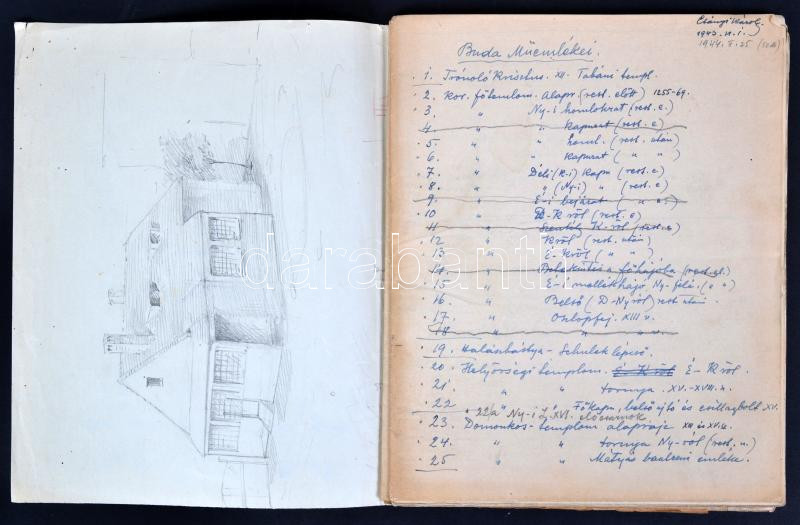 Csányi Károly
1943. VI. 1.
1944. V. 25
Buda Műemlékei.
1. Trónoló Krisztus. XII. Tabáni templ.
2. Kor. főtemplom. Alapr. (rest. előtt) 1255-69.
3. " Ny-i homlokzat (rest. e.)
4. " " kapuzat (rest. e)
5. " " homl. (rest. után)
6. " " kapuzat ( " " )
7. " Déli (K-i) kapu (rest. e)
8. " " (Ny-i) " (rest. e)
9 " É-i bejárat ( " e.)
10 " D-K ről (rest. e)
11 " Szentély K-ről (rest. e)
12 " Kről (rest. után)
13 " É-Kről ( " " )
14. " a főhajóba (rest. el.)
15 " É-i mellékhajó Ny-felé. ( " " )
16. " Belső (D-Nyról) rest. után.
17. " Oszlopfej. XIII v.
18 " " " v.
19. Halászbástya - Schulek lépcső.
20. Helyőrségi templom. É-K ről É-Kről.
21. " " tornya. XV.-XVIII. v.
22 " " Főkapu, belső ajtó és csillagbolt XV.
22/a " Ny-i XVI. előcsarnok
23. Domonkos-templom alaprajza XIII és XV. v.
24. " " tornya Ny-ról (rest. u.)
25 " " Mátyás bautzeni emléke.
darabanth